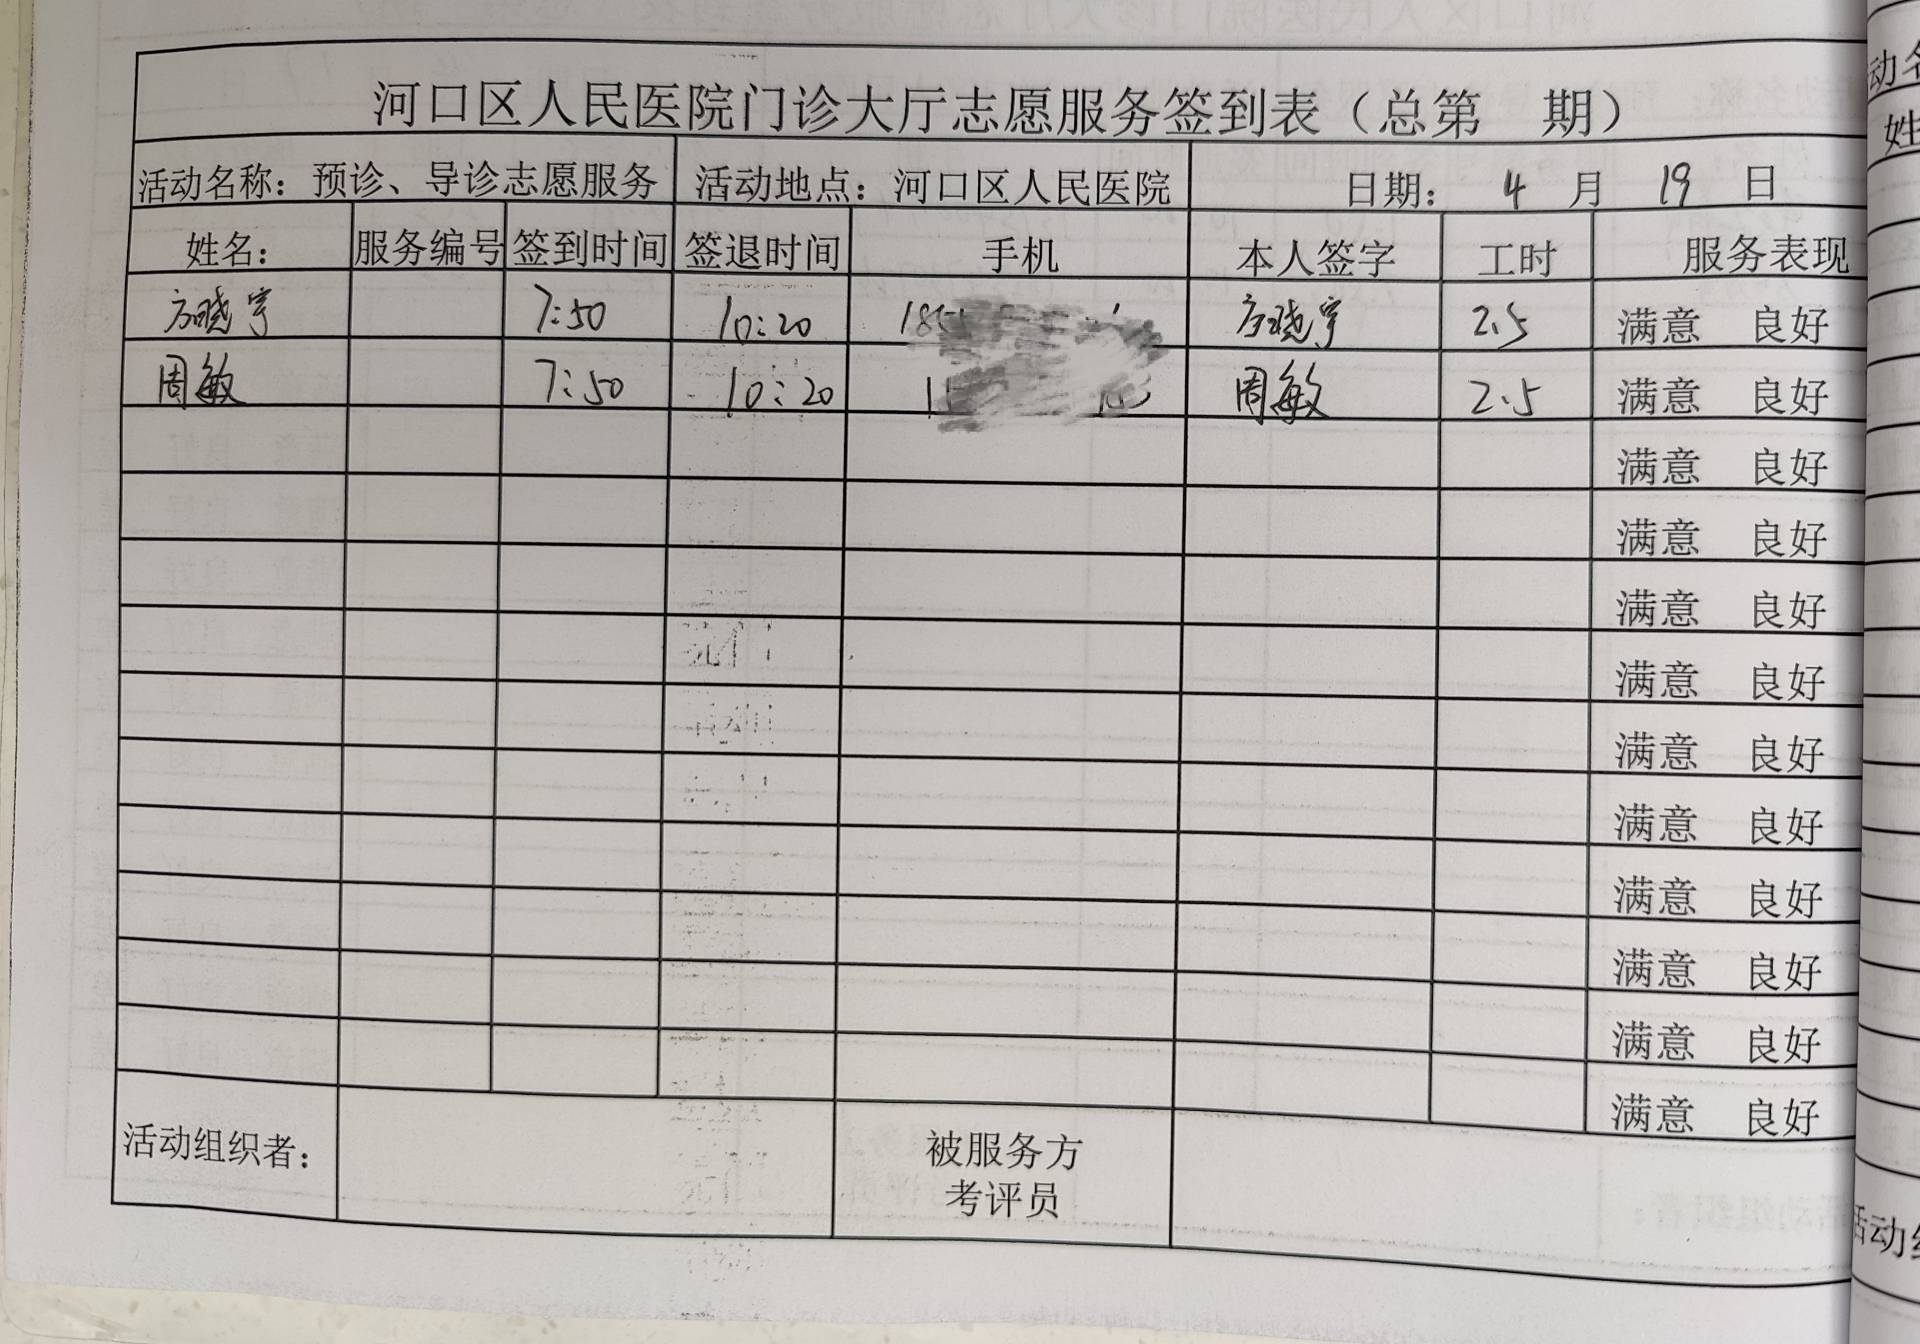 河口区人民医院门诊大厅志愿服务签到表（总第 期）
活动名称：预诊、导诊志愿服务 活动地点：河口区人民医院 日期： 4 月 19 日
姓名： 服务编号 签到时间 签退时间 手机 本人签字 工时 服务表现
方晓宇 7:50 10:20 方晓宇 2.5 满意 良好
周敏 7:50 10:20 周敏 2.5 满意 良好
满意 良好
满意 良好
满意 良好
满意 良好
满意 良好
满意 良好
满意 良好
满意 良好
满意 良好
满意 良好
活动组织者： 被服务方
考评员
动名
姓
活动组